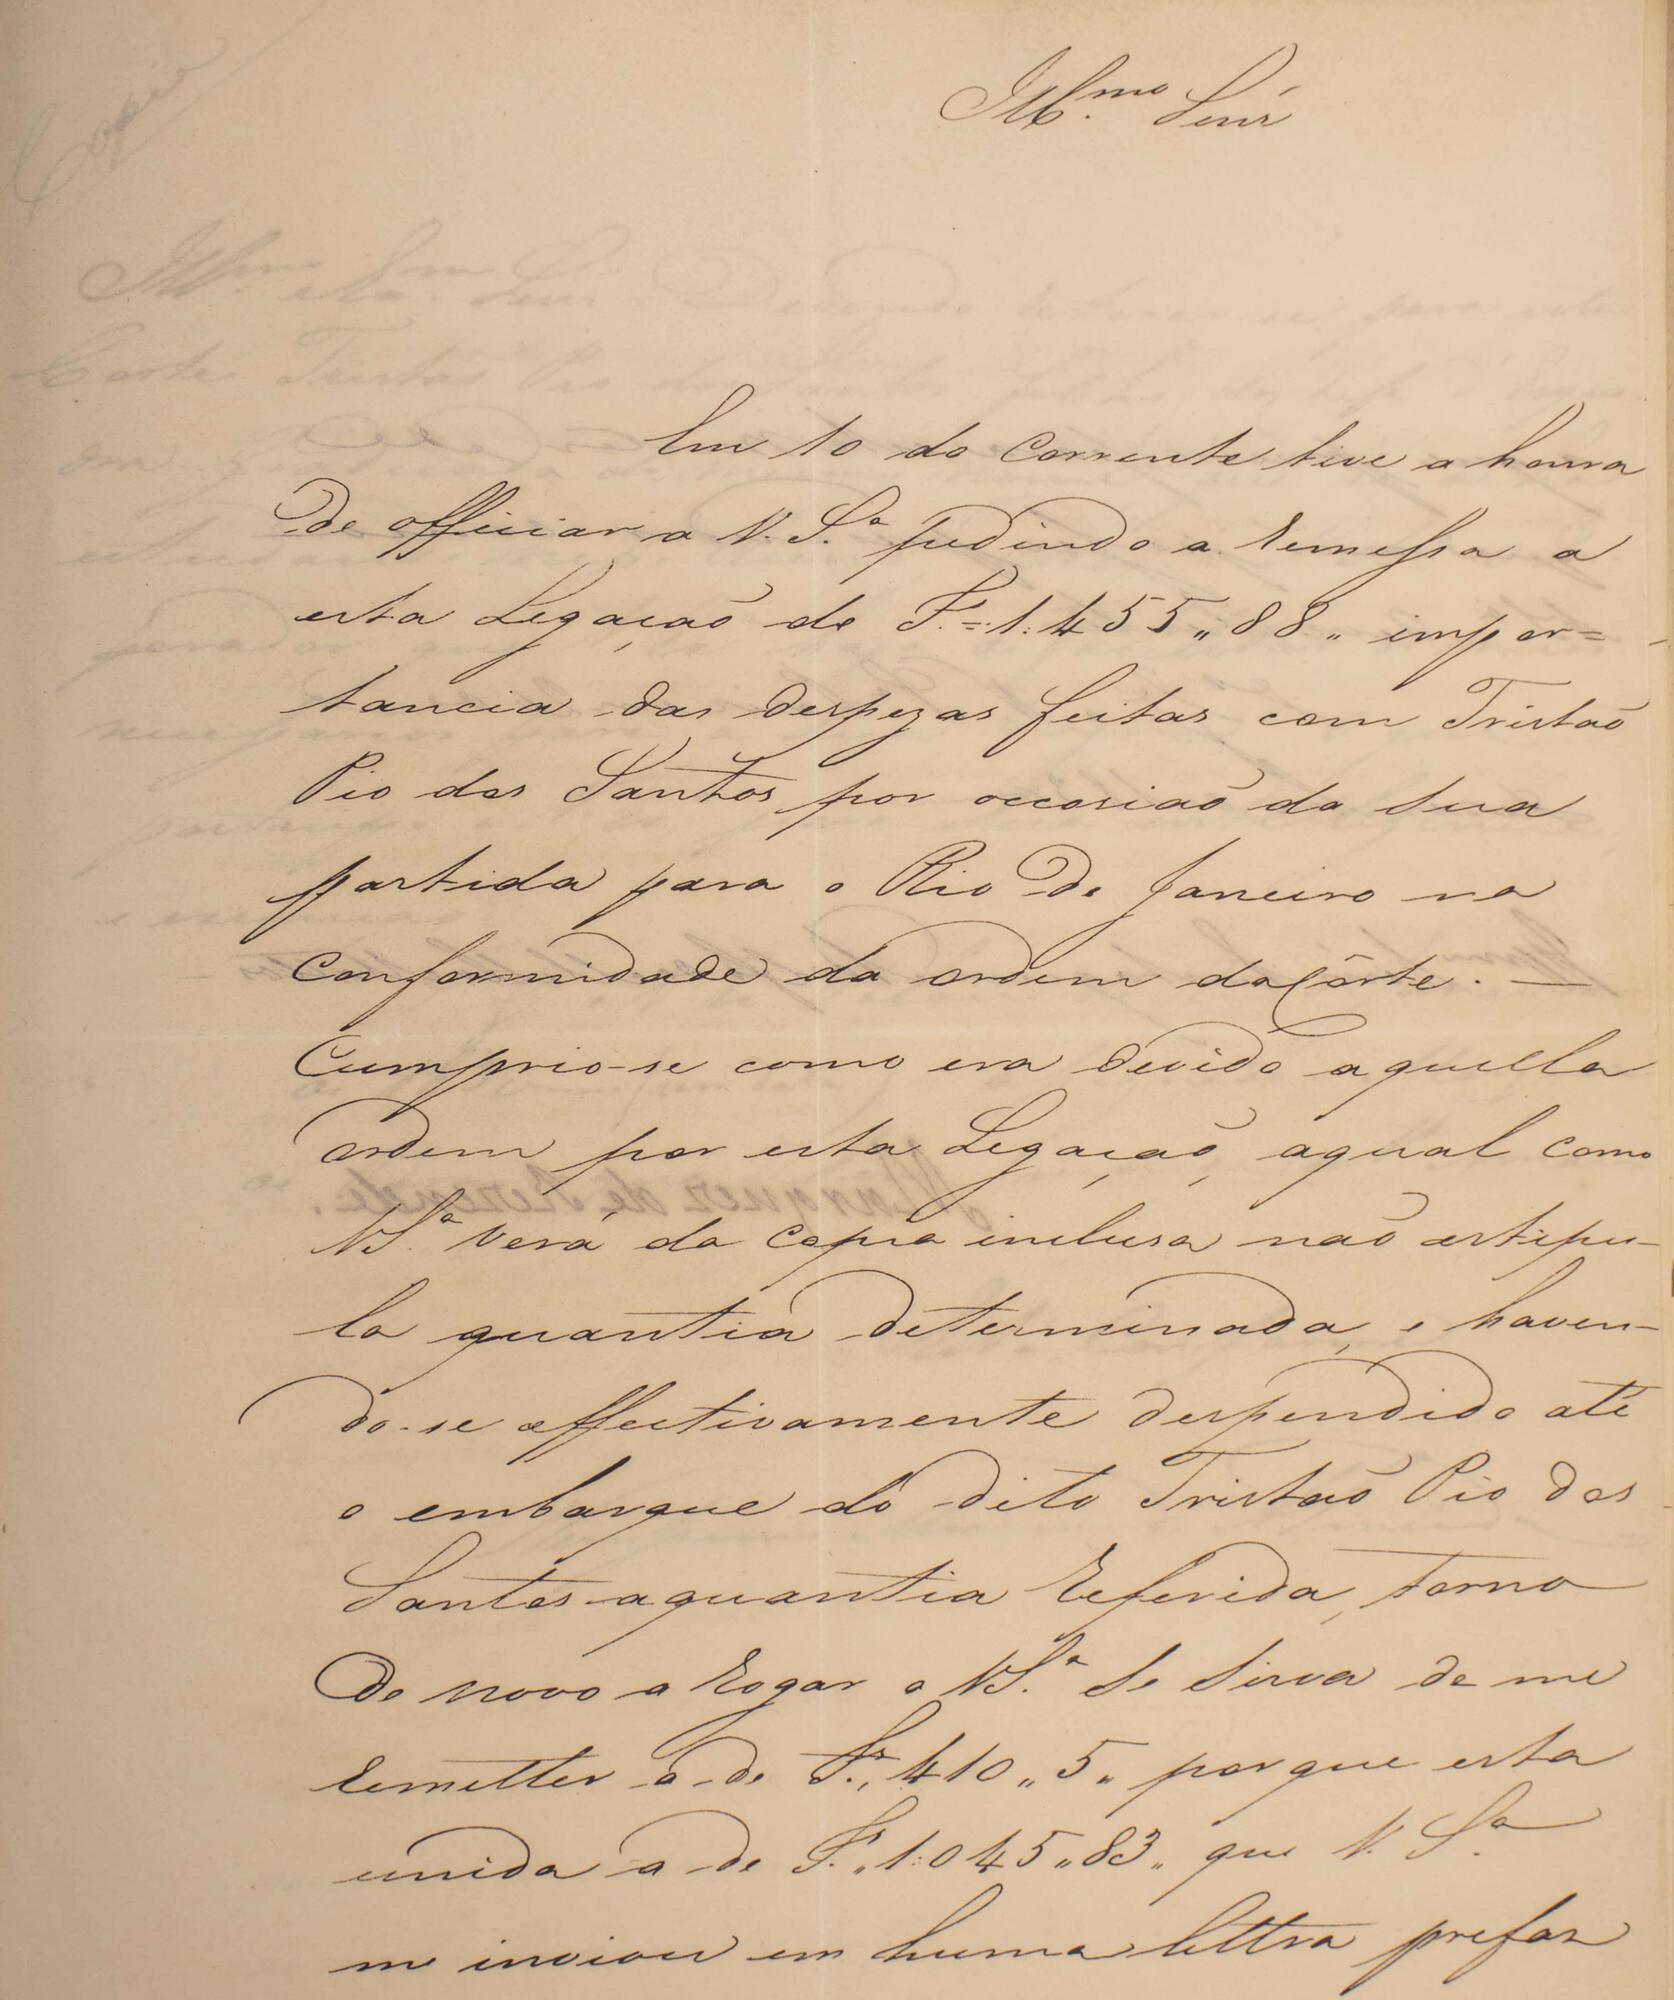 Copia
Ill.mo Senr
Em 10 do corrente tive a honra
de officiar a V. S.a pedindo a remessa a
esta Legação de F.=1:455,,88,, impor=
tancia das despezas feitas com Tristão
Pio dos Santos por occasião da sua
partida para o Rio de Janeiro na
conformidade da ordem da Côrte. —
Cumprio-se como era devido aquella
ordem por esta Legação, a qual como
V S.a verá da copia inclusa não estipu-
la quantia determinada, e haven-
do-se effectivamente despendido até
o embarque do dito Tristão Pio dos
Santos a quantia referida, torno
de novo a rogar a V S.a se sirva de me
remetter a de Fr.,,410,,5,, porque esta
unida a de Fr.,,1:045,,83,, que V. S.a
me inviou em huma lettra prefaz